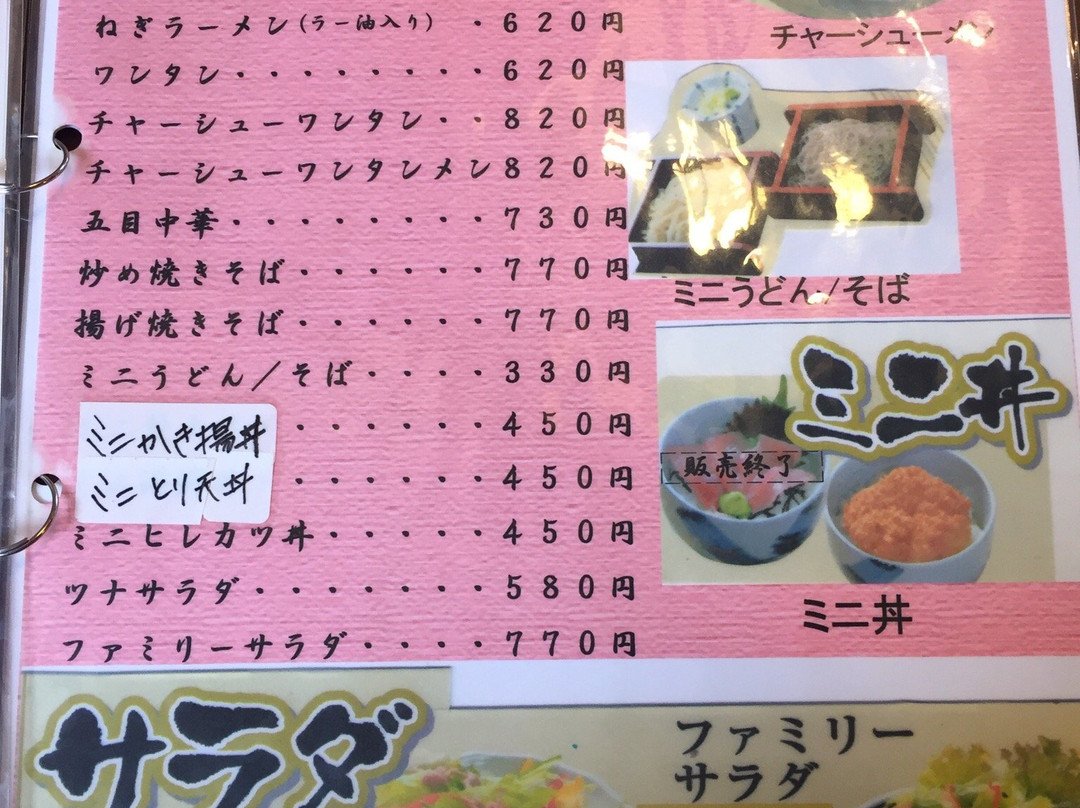 ねぎラーメン(ラー油入り)・620円
ワンタン・・・・・・・・620円
チャーシューワンタン・・820円
チャーシューワンタンメン820円
五目中華・・・・・・・・730円
炒め焼きそば・・・・・・770円
揚げ焼きそば・・・・・・770円
ミニうどん/そば・・・・330円
ミニかき揚丼・・・・・・450円
ミニとり天丼・・・・・・450円
ミニヒレカツ丼・・・・・450円
ツナサラダ・・・・・・・580円
ファミリーサラダ・・・・770円
チャーシューメン
ミニうどん/そば
ミニ丼
販売終了
ミニ丼
サラダ
ファミリー
サラダ